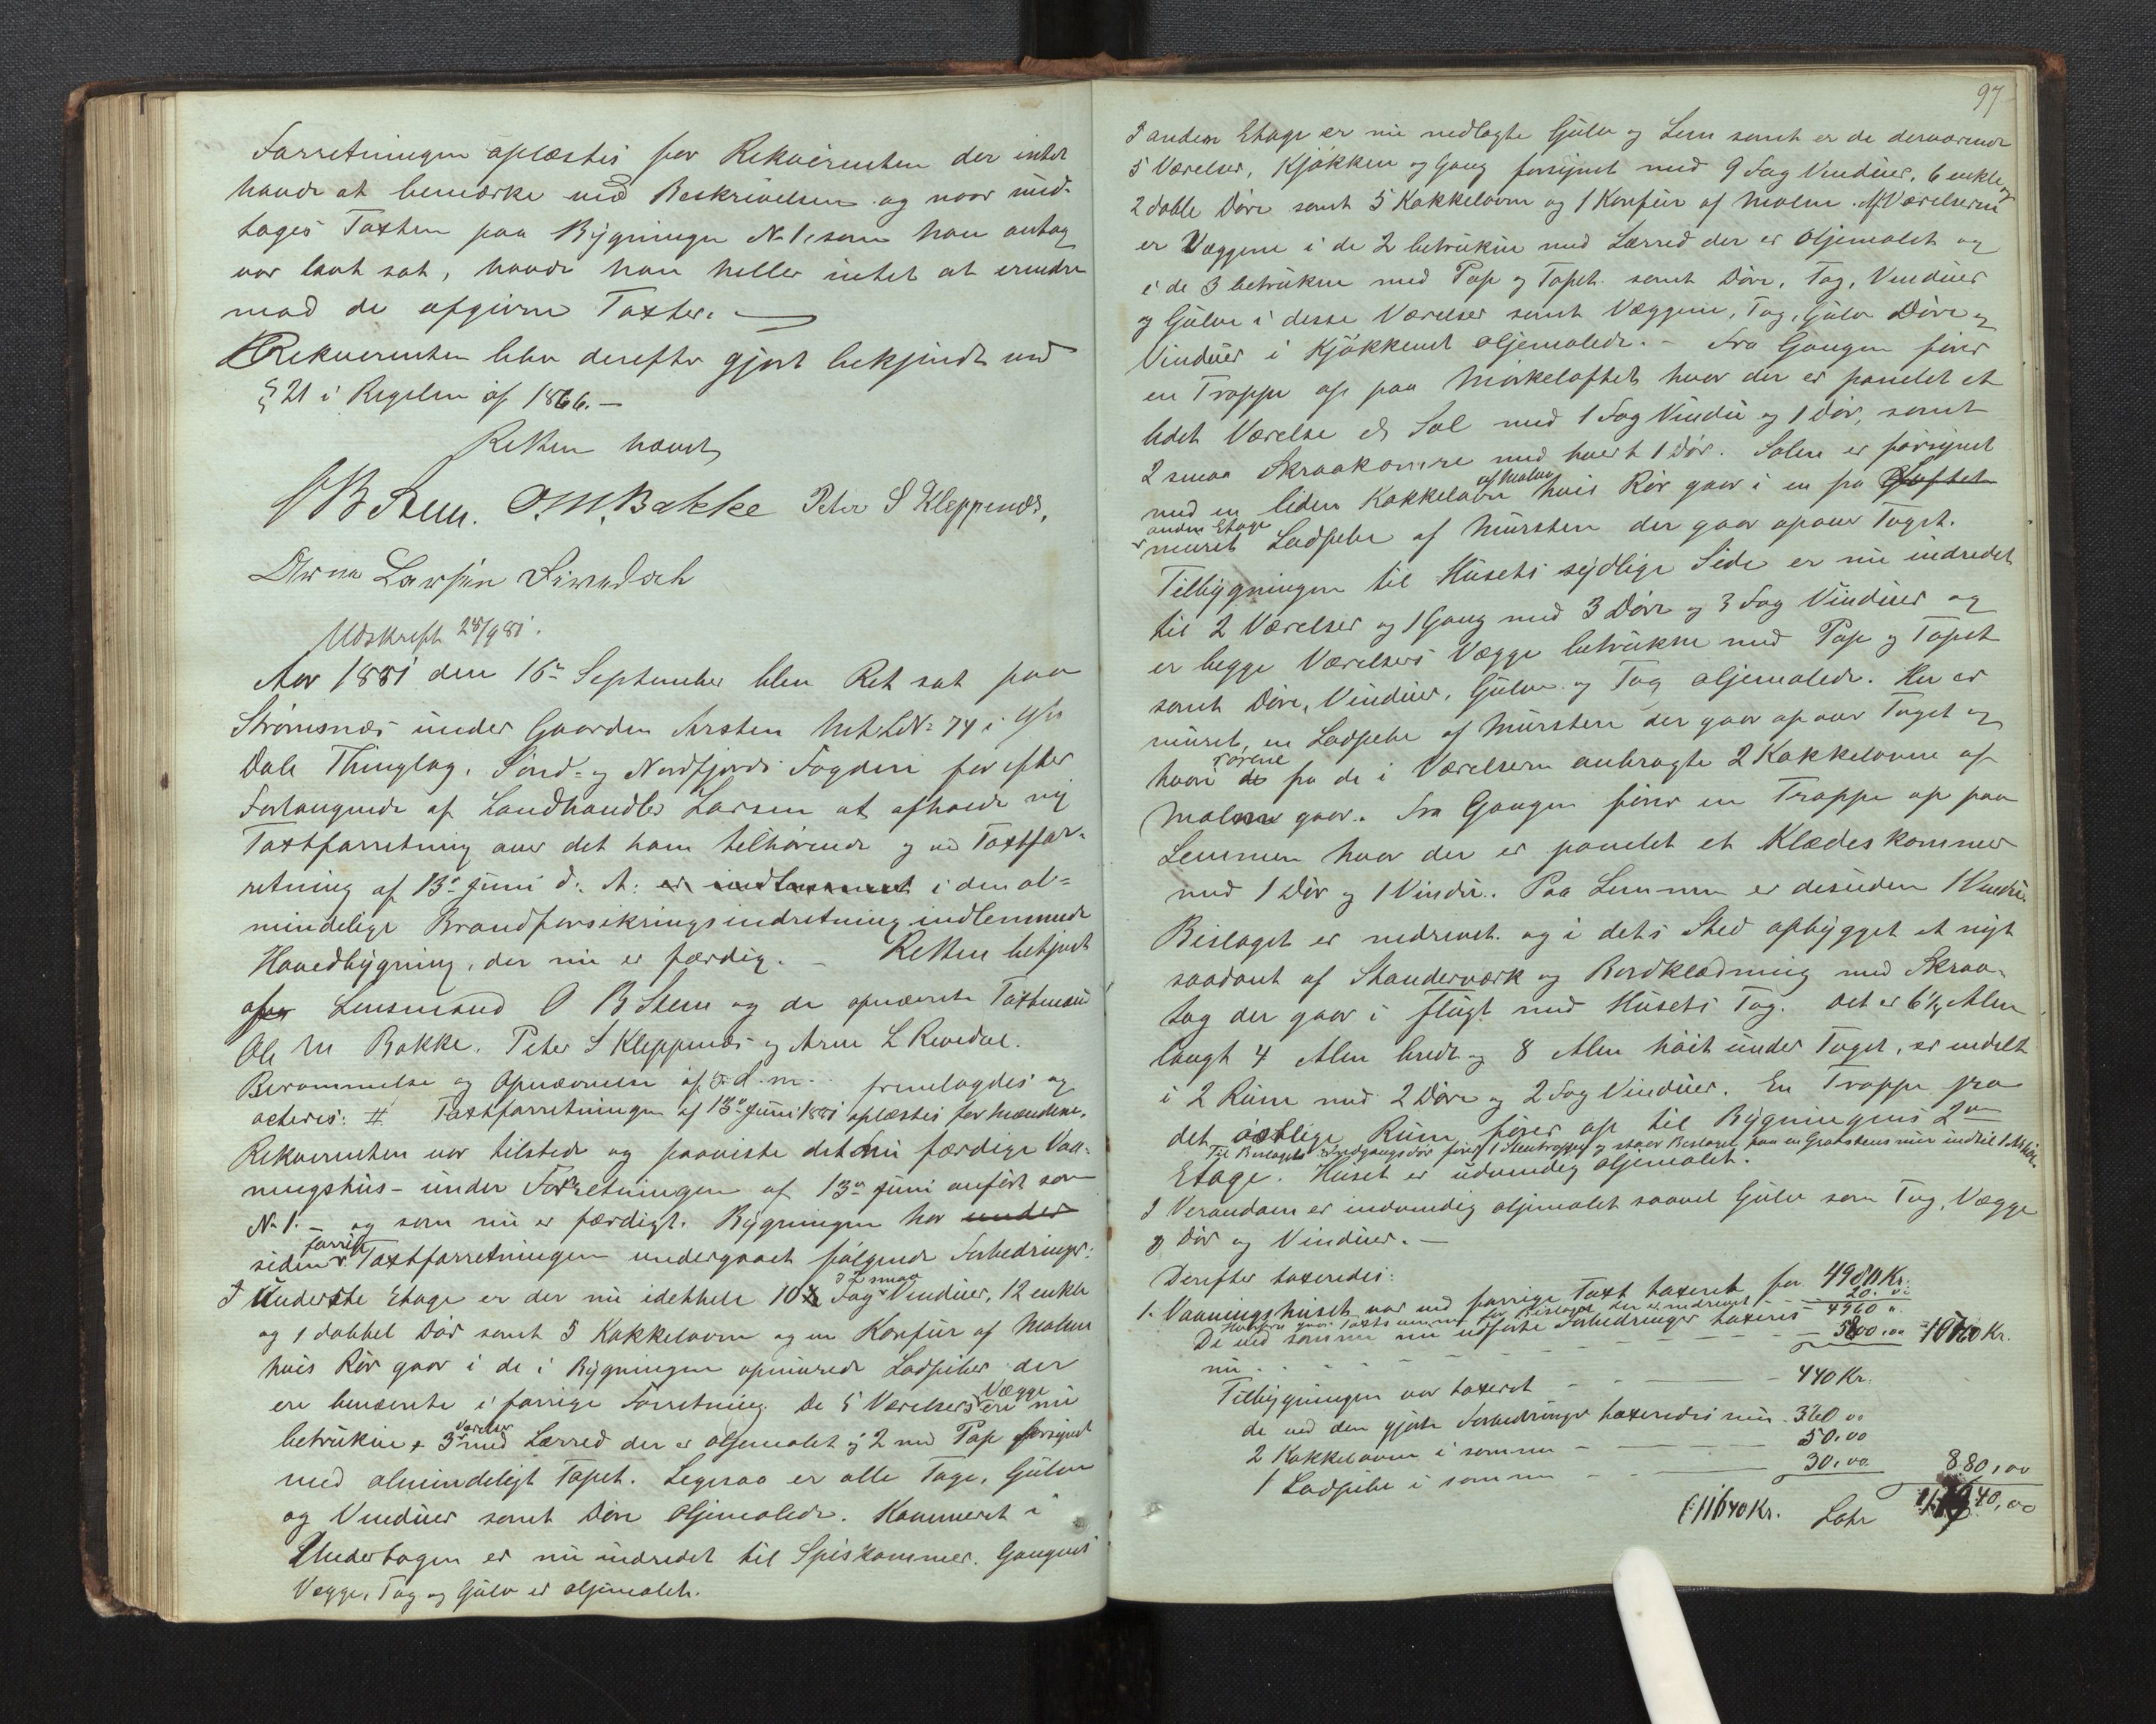 Forretningen oplæstes for Rekvirenten der intet
havde at bemærke ved Beskrivelsen og naar und-
tages Taxten paa Bygningen No 1, som han antog
var lavt sat, havde han heller intet at erindre
mod de afgivne Taxter. —
Rekvirenten blev derefter gjort bekjendt med
§ 21 i Reglen af 1866. —
Retten hævet
O B Stem. O. M. Bakke Peter S Kleppenæs,
Arne Larsen
Udskrift 28/9 81.
Aar 1881 den 16de September blev Ret sat paa
Strømsnæs under Gaarden Arsten Mt. LNo 74 i
Dale Thinglag, Sønd- og Nordfjords Fogderi for efter
Forlangende af Landhandler Larsen at afholde ny
Taxtforretning over det ham tilhørende og ved Taxtfor-
retning af 13de Juni d: A: er indlemmet i den al-
mindelige Brandforsikringsindretning indlemmede
Hovedbygning, der nu er færdig. — Retten betjent
af Lensmand O B Stem og de opnævnte Taxtmænd
Ole M Bakke, Peter S Kleppenæs og Arne L
Berammelse og Opnævnelse af d. m. fremlagdes og
acteres: # Taxtforretningen af 13de Juni 1881 oplæstes for Mændene.
Rekvirenten var tilstede og paaviste det nu færdige Vaa-
ningshus – under Forretningen af 13de Juni anført som
No 1. – og som nu er færdigt. Bygningen har under
siden forrige Taxtforretningen undergaaet følgende Forbedringer:
I Underste Etage er der nu idethele 10 Fag 2 smaa Vinduer, 12 enkle
og 1 dobbel Dør samt 5 Kakkelovne og en Komfur af Malm
hvis Rør gaar i de i Bygningen opmurede Ladpiber der
ere benævnte i forrige Forretning. De 5 Værelsers Vægge ere nu
betrukne 3 Værelser med Lærred der er oljemalet og 2 med Pap forsynet
med almindeligt Tapet. Ligesaa er alle Tage, Gulve
og Vinduer samt Døre Oljemalede. Kammeret i
Underetagen er nu indredet til Spiskammer. Gangens
Vægge, Tag og Gulv er oljemalet.
97
I anden Etage er nu nedlagte Gulv og Lem samt er de derværende
5 Værelser, Kjøkken og Gang forsynet med 9 Fag Vinduer, 6 enkle og
2 doble Døre samt 5 Kakkelovne og 1 Komfur af Malm. Af Værelserne
er Væggene i de 2 betrukne med Lærred der er Oljemalet og
i de 3 betrukne med Pap og Tapet samt Døre, Tag, Vinduer
og Gulve i disse Værelser samt Væggene, Tag, Gulv Døre og
Vinduer i Kjøkkenet oljemalede. – Fra Gangen fører
en Trappe op paa Mørkeloftet hvor der er panelet et
lidet Værelse et Sal med 1 Fag Vindu og 1 Dør, samt
2 smaa Skraakamre med hvert 1 Dør. Salen er forsynet
med en liden Kakkelovn af Malm hvis Rør gaar i en fra Loftet
anden Etage muret Ladpibe af Mursten der gaar opover Taget.
Tilbygningen til Husets sydlige Side er nu indredet
til 2 Værelser og 1 Gang med 3 Døre og 3 Fag Vinduer og
er begge Værelsers Vægge betrukne med Pap og Tapet
samt Døre, Vinduer, Gulve og Tag oljemalede. Her er
muret en Ladpibe af Mursten der gaar opover Taget og
hvori Rørene fra de i Værelserne anbragte 2 Kakkelovne af
Malm gaar. Fra Gangen fører en Trappe op paa
Lemmen hvor der er panelet et Klædeskammer
med 1 Dør og 1 Vindu. Paa Lemmen er desuden 1 Vindu.
Bislaget er nedrevet og i dets Sted opbygget et nyt
saadant af Standerværk og Bordklædning med Skraa-
tag der gaar i flugt med Husets Tag. Det er 6 1/4 Alen
langt 4 Alen bredt og 8 Alen høit under Taget, er indelt
i 2 Rum med 2 Døre og 2 Fag Vinduer. En Trappe fra
det østlige Rum fører op til Bygningens 2den
Til Bislagets Indgangsdør fører 1 Stentrappe og staar Bislaget paa en Graastensmur indtil 1 Al. høi.
Etage. Huset er udvendig oljemalet.
I Verandaen er indvendig oljemalet saavel Gulv som Tag, Vægge
og Dør og Vinduer. —
Derefter taxeredes:
1. Vaaningshuset var ved forrige Taxt taxeret for 4980 Kr.
Herfra gaar Taxtsummen for Bislaget der er nedrevet 20. "
4960 "
De ved samme nu udførte Forbedringer taxeres
nu – – – 5800,00 10760 Kr.
Tilbygningen var taxeret – – – 440 Kr.
de ved den gjorte Forbedringer taxeredes nu 360 00
2 Kakkelovne i samme – – – 50,00
1 Ladpibe i samme – – – 30,00 880,00
(: 11640 Kr. Latr 11640,00